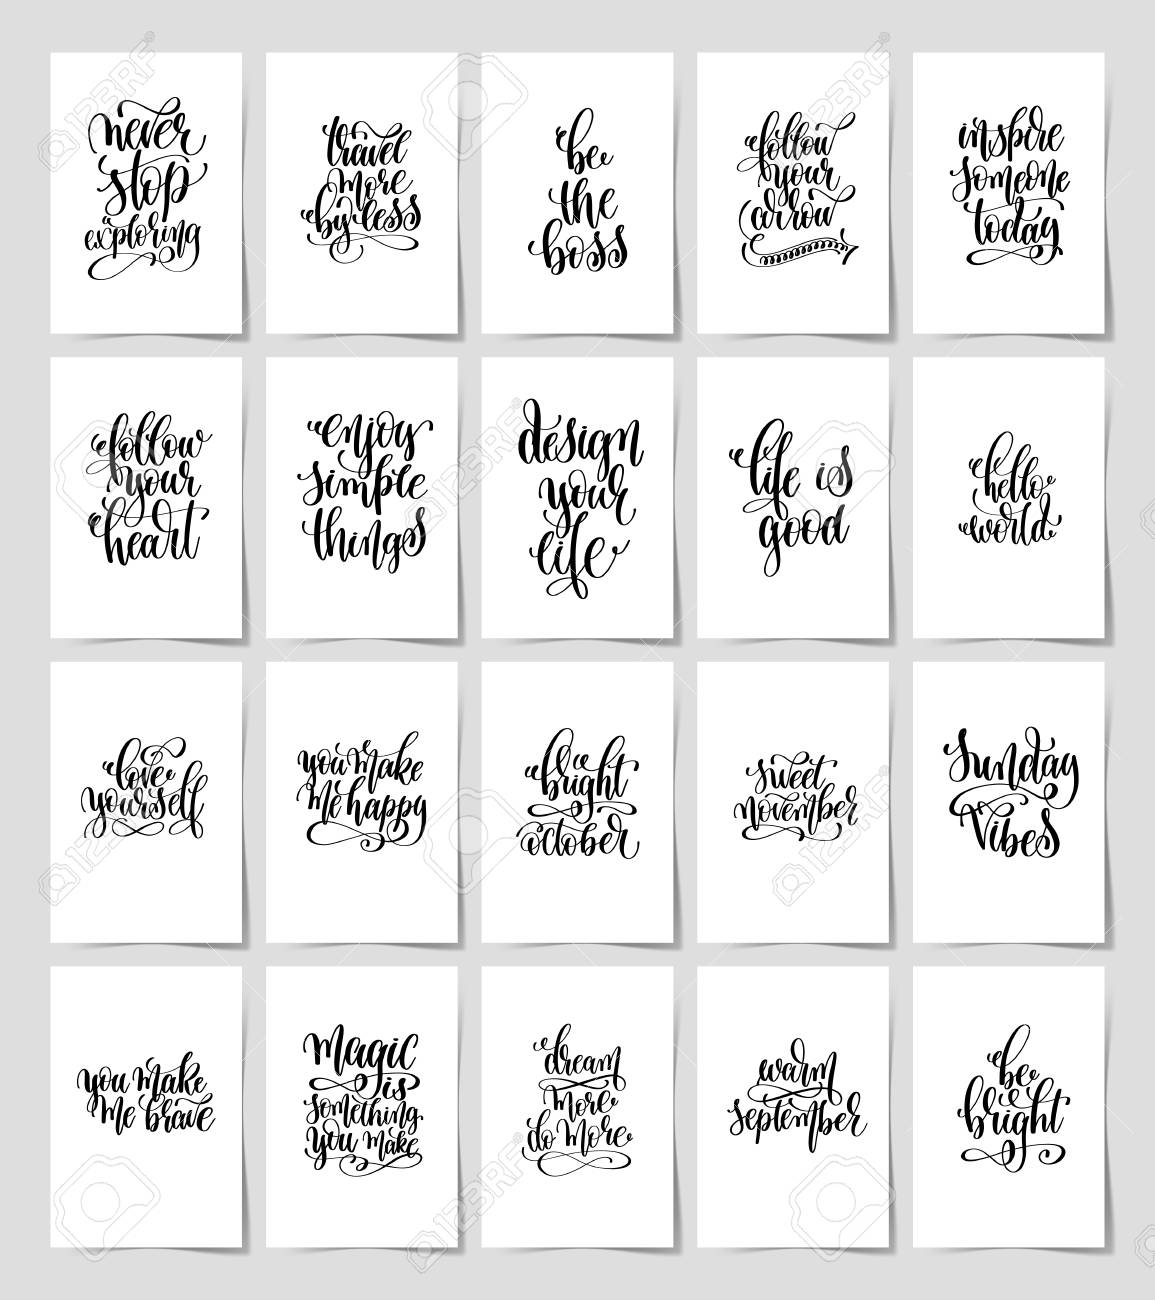 never
stop
exploring
travel
more
by less
be
the
boss
follow
your
arrow
inspire
someone
today
follow
your
heart
enjoy
simple
things
design
your
life
life is
good
hello
world
love
yourself
you make
me happy
bright
october
sweet
november
Sunday
Vibes
you make
me brave
magic
is
something
you make
dream
more
do more
warm
september
be
bright
123RF